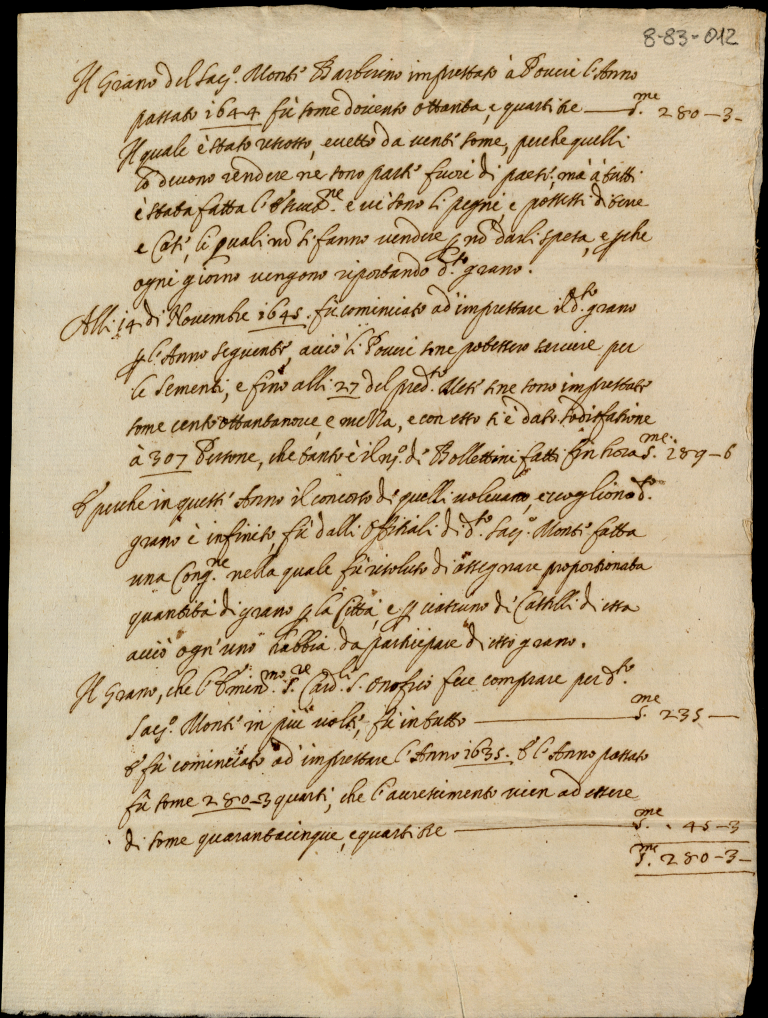 8-83-012
Il Grano del Sac.o Monte Barberino imprestato à Poveri l'Anno
passato 1644 fù some ducento ottanta, e quarti tre — S.me 280-3-
Il quale è stato riscosso, eccetto da venti some, perche quelli
lo devono rendere ne sono parte fuori di paese, mà à tutti
è stata fatta l'essecut.ne e vi sono li pegni, e possessi di terre
e Case, li quali nõ si fanno vendere p nõ darli spesa, e pche
ogni giorno vengono riportando d.to grano.
Alli 14 di Novembre 1645. fù cominciato ad imprestare il d.to grano
p l'Anno seguente, acciò li Poveri se ne potessero servire per
le sementi, e fino alli 27 del pred.to Mese se ne sono imprestate
some cento ottantanove, e mezza, e con esso si è dato sodisfatione
à 307 Persone, che tanto è il n.o di Bollettini fatti fin hora S.me 189-6
E perche in quest'Anno il concorso di quelli volevano, e vogliono d.to
grano è infinito, fù dalli Offitiali di d.to Sac.o Monte fatta
una Cong.ne nella quale fù risoluto di assegnare proportionata
quantità di grano p la Città, e p ciascuno di Castelli di essa
acciò ogn'uno habbia da participare di esso grano.
Il Grano, che l'Emin.mo S.re Card.le S. Onofrio fece comprare per d.to
Sac.o Monte in più volte, fù in tutto — S.me 235 —
E fù cominciato ad imprestare l'Anno 1635. E l'Anno passato
fù some 280-3 quarti, che l'accrescimento vien ad essere
di some quarantacinque, e quarti tre — S.me 45-3
S.me 280-3-